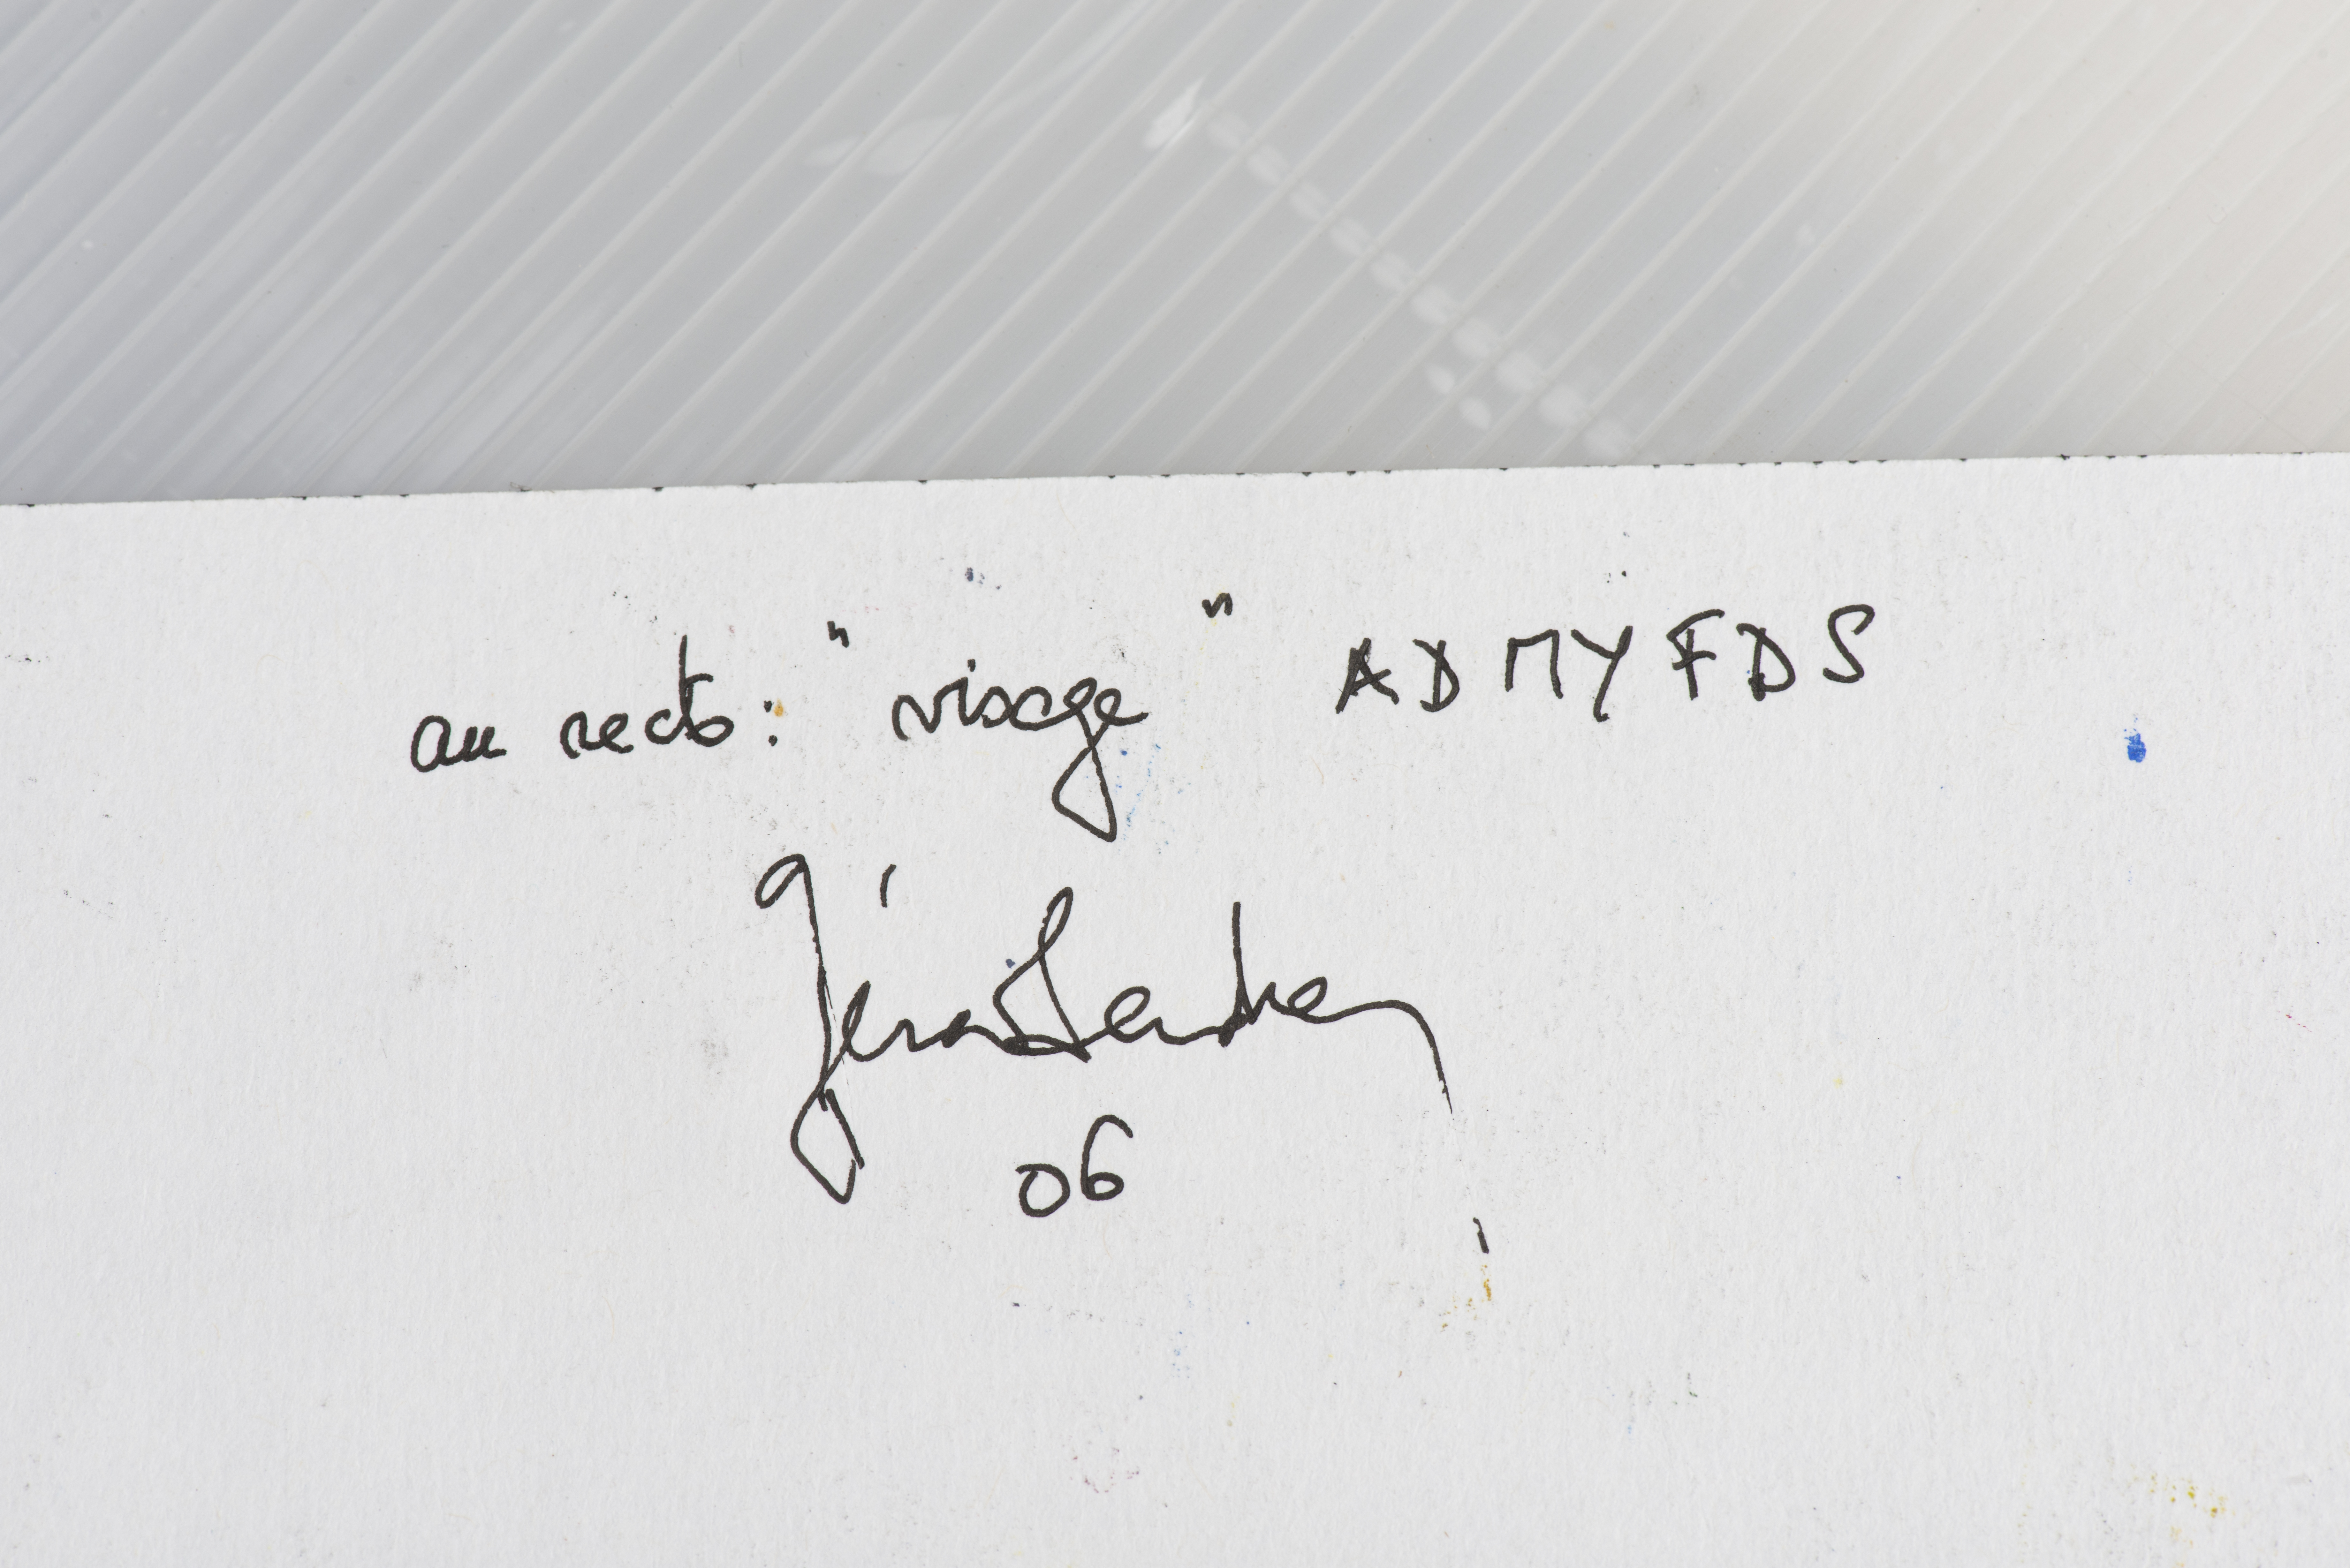 au recto: "visage" ADMYFDS
06